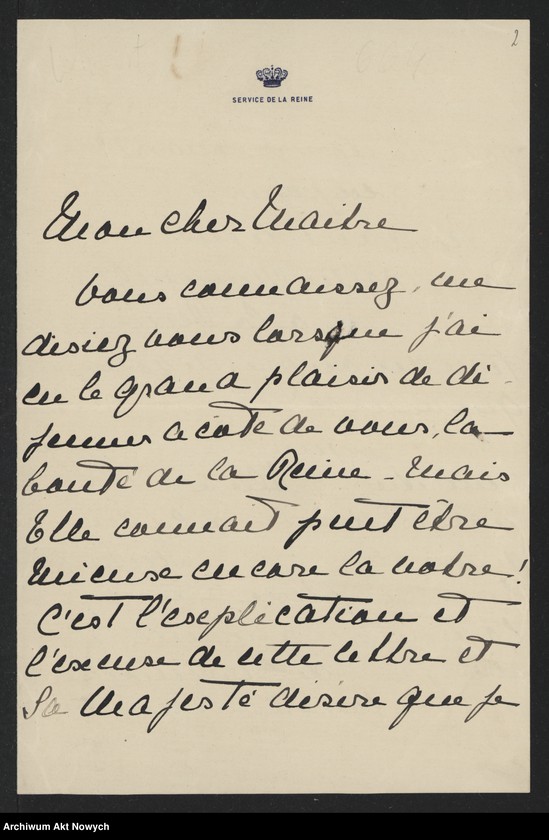 2
SERVICE DE LA REINE
Mon cher Maitre
Vous connaissez, me
disiez vous lorsque j'ai
eu le grand plaisir de dé-
jeuner à coté de vous, la
bonté de la Reine - Mais
Elle connait peut être
mieux encore la votre!
C'est l'explication et
l'excuse de cette lettre et
Sa Majesté désire que je
Archiwum Akt Nowych